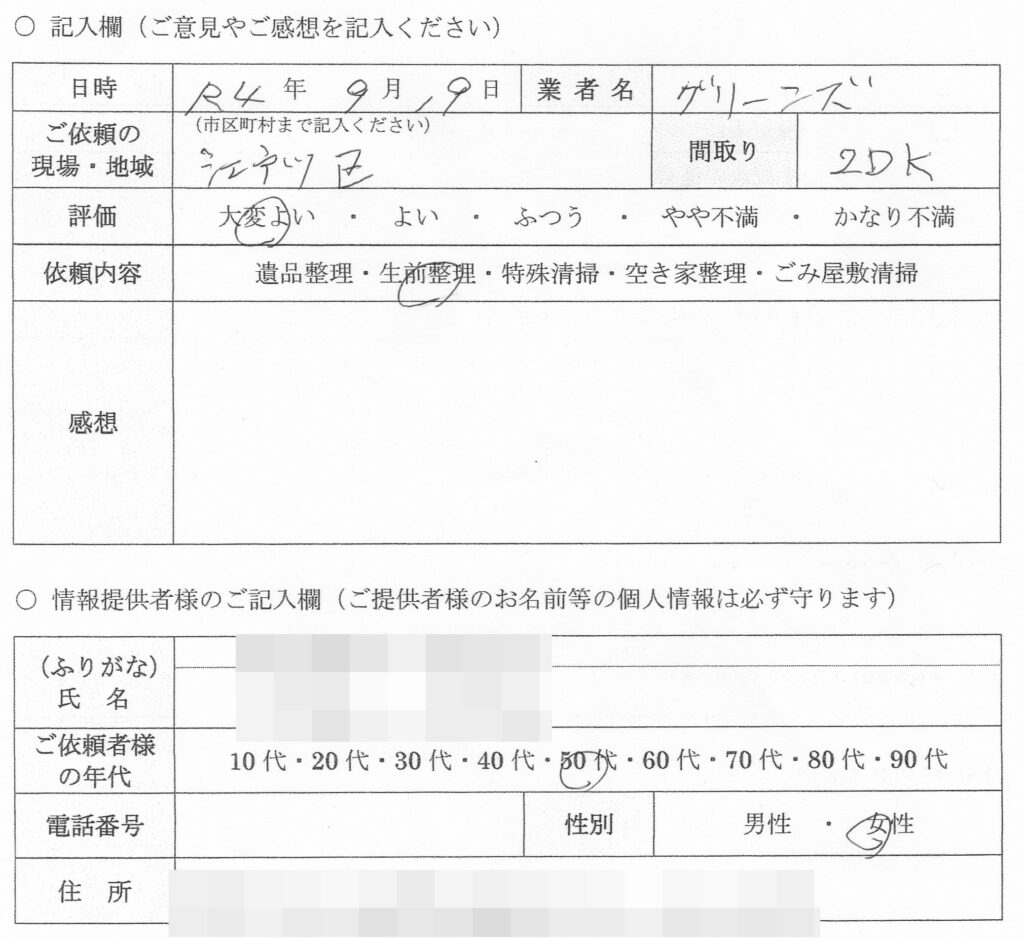 ○ 記入欄（ご意見やご感想を記入ください）
日時 R4年 9月 19日 業者名 グリーンズ
ご依頼の現場・地域 （市区町村まで記入ください） 区 間取り 2DK
評価 大変よい ・ よい ・ ふつう ・ やや不満 ・ かなり不満
依頼内容 遺品整理・生前整理・特殊清掃・空き家整理・ごみ屋敷清掃
感想
○ 情報提供者様のご記入欄（ご提供者様のお名前等の個人情報は必ず守ります）
（ふりがな）
氏 名
ご依頼者様の年代 10代・20代・30代・40代・50代・60代・70代・80代・90代
電話番号 性別 男性 ・ 女性
住 所